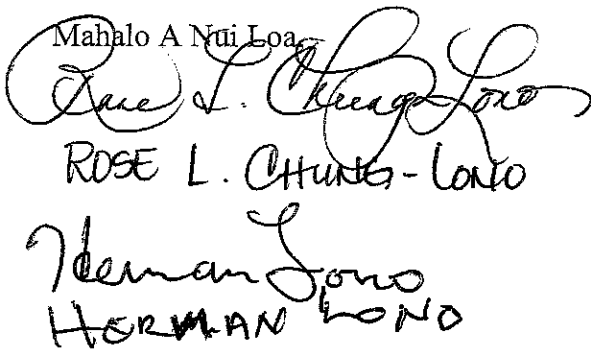 Mahalo A Nui Loa,
Rose L. Chung-Lono
ROSE L. CHUNG-LONO
Herman Lono
HERMAN LONO